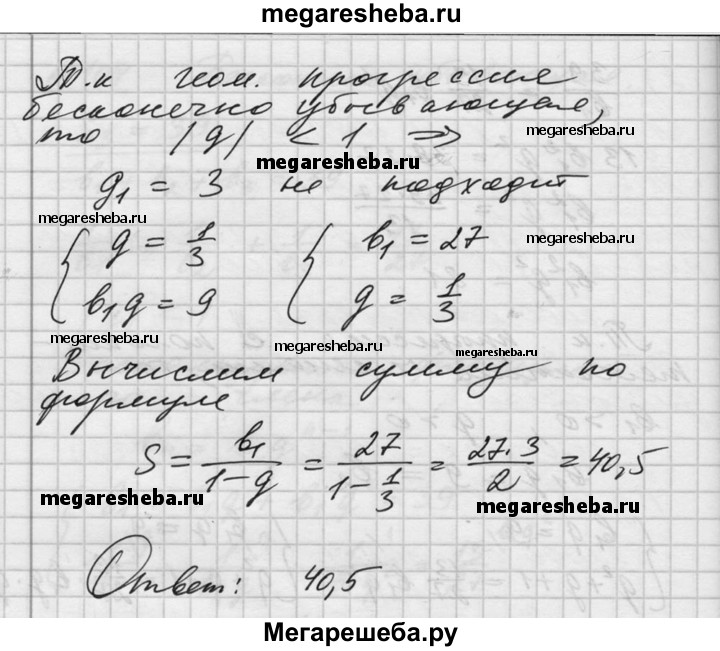 megaresheba.ru
Т.к геом. прогрессия
бесконечно убывающая,
megaresheba.ru
то |q| < 1 ⇒
megaresheba.ru
q₁ = 3 не подходит
megaresheba.ru
megaresheba.ru
{ q = 1/3 { b₁ = 27
{ b₁q = 9 { q = 1/3
megaresheba.ru
megaresheba.ru
megaresheba.ru
Вычислим сумму по
формуле
S = b₁/(1-q) = 27/(1-1/3) = 27·3/2 = 40,5
megaresheba.ru
megaresheba.ru
Ответ: 40,5
Мегарешеба.ру